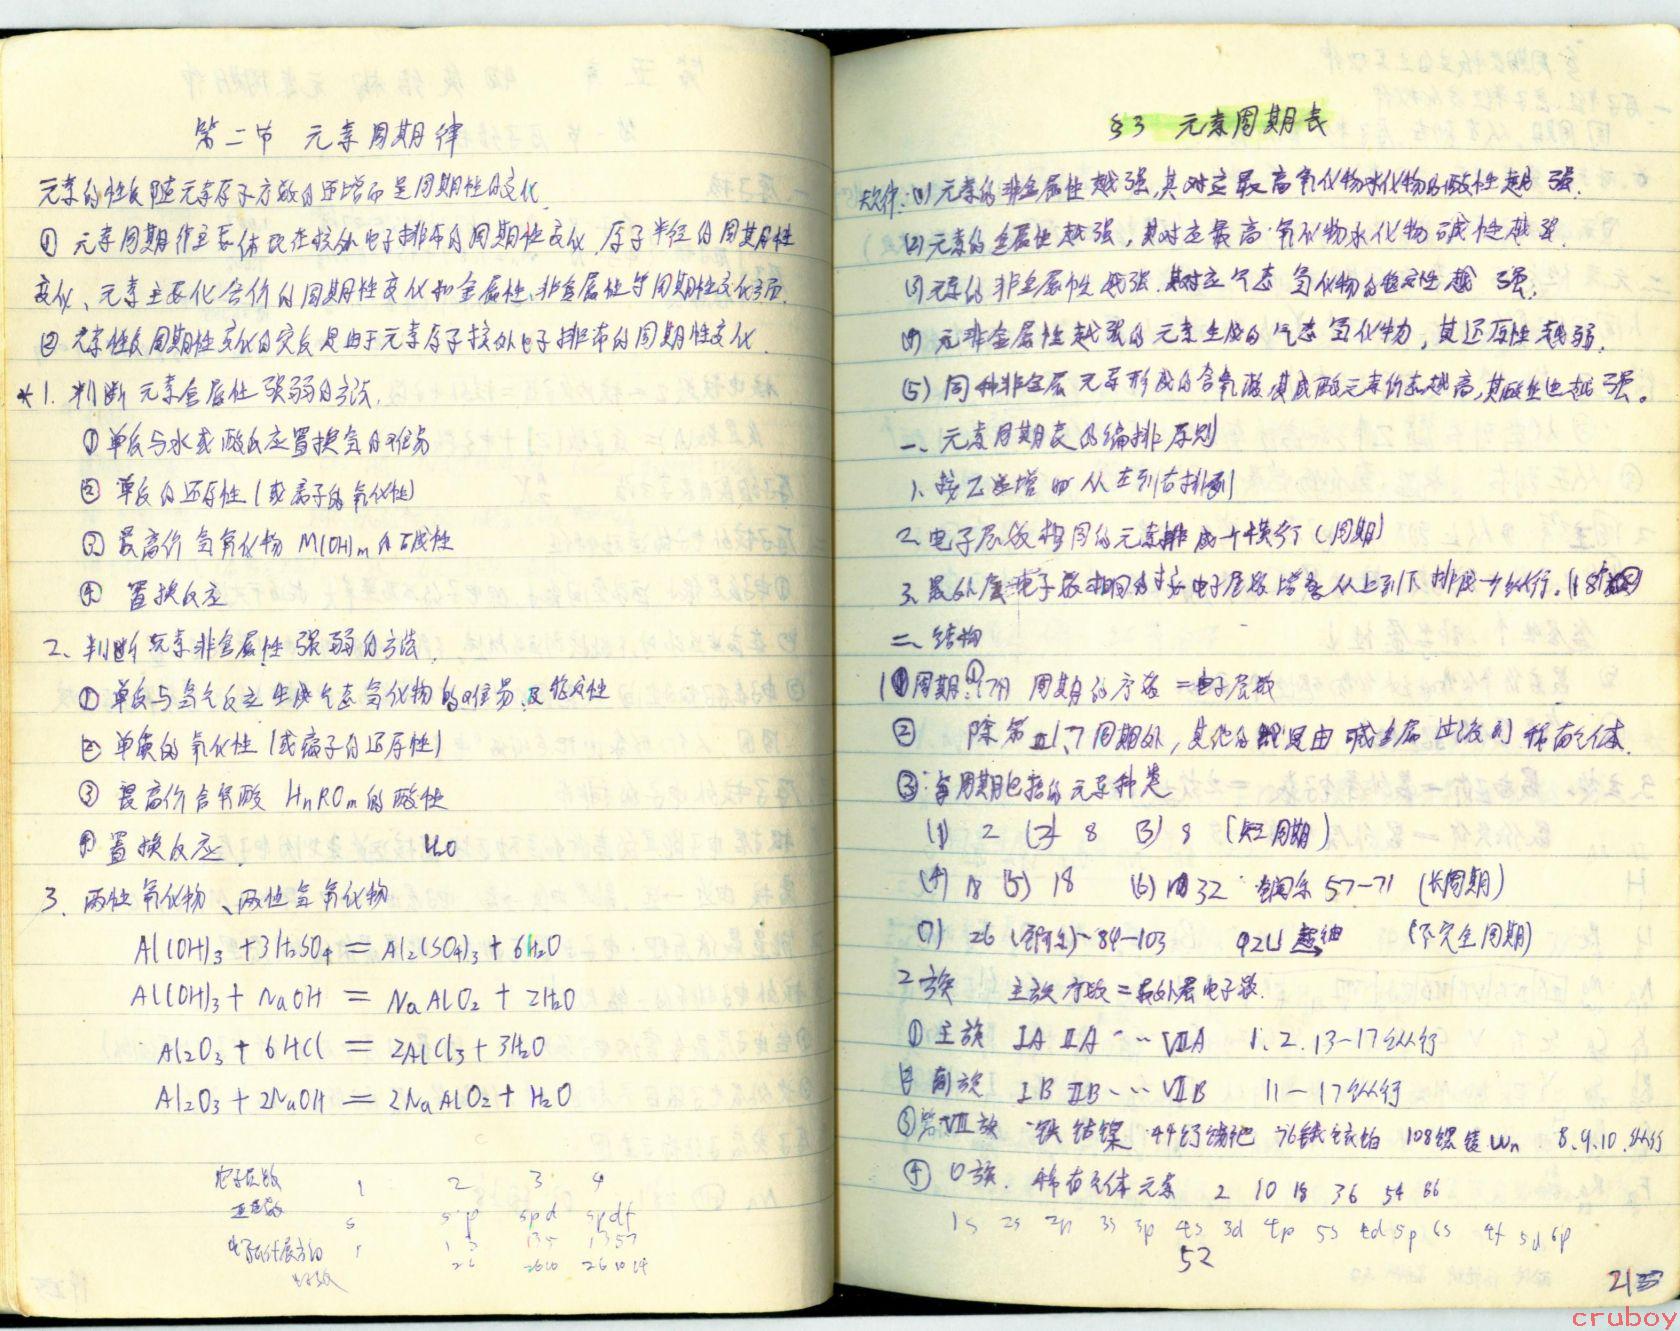 第二节 元素周期律
元素的性质随元素原子序数的递增而呈周期性的变化.
① 元素周期律主要体现在核外电子排布的周期性变化、原子半径的周期性
变化、元素主要化合价的周期性变化和金属性、非金属性等周期性变化
② 元素性质周期性变化的实质是由于元素原子核外电子排布的周期性变化.
* 1. 判断元素金属性强弱的方法.
① 单质与水或酸反应置换氢的难易
② 单质的还原性(或离子的氧化性)
③ 最高价氢氧化物 M(OH)m 的碱性
④ 置换反应
2、判断元素非金属性强弱的方法.
① 单质与氢气反应生成气态氢化物的难易及稳定性
② 单质的氧化性(或离子的还原性)
③ 最高价含氧酸 HnROm 的酸性
④ 置换反应. H₂O
3. 两性氧化物、两性氢氧化物
Al(OH)₃ + 3H₂SO₄ = Al₂(SO₄)₃ + 6H₂O
Al(OH)₃ + NaOH = NaAlO₂ + 2H₂O
Al₂O₃ + 6HCl = 2AlCl₃ + 3H₂O
Al₂O₃ + 2NaOH = 2NaAlO₂ + H₂O
电子层数 1 2 3 4
s s p s p d s p d f
1 1 3 1 3 5 1 3 5 7
电子数 2 6 2 6 10 2 6 10 14
§3 元素周期表
(1) 元素的非金属性越强,其对应最高氧化物水化物的酸性越强.
(2) 元素的金属性越强,其对应最高氧化物水化物碱性越强.
(3) 元素的非金属性越强.其对应气态氢化物的稳定性越强.
(4) 元非金属性越强的元素生成的气态氢化物,其还原性越弱.
(5) 同种非金属元素形成的含氧酸,其成酸元素价态越高,其酸性也越强。
一、元素周期表的编排原则
1、按Z递增时从左到右排列
2、电子层数相同的元素排成一个横行(周期)
3、最外层电子数相同的按电子层数增多从上到下排成一个纵行.
二、结构
1周期:①(7个) 周期的序数=电子层数
② 除第一、7周期外,其他的都是由碱金属过渡到稀有气体.
③:每周期包括的元素种类
(1) 2 (2) 8 (3) 8 (短周期)
(4) 18 (5) 18 (6) 32 镧系 57-71 (长周期)
(7) 26 89-103 92U 超铀 (不完全周期)
2 族 主族序数=最外层电子数.
① 主族 ⅠA ⅡA … ⅦA 1. 2. 13-17纵行
② 副族 ⅠB ⅡB … ⅦB 11-17纵行
③第Ⅷ族 铁钴镍 44钌铑钯 76锇铱铂 8.9.10.纵行
④ 0族. 稀有气体元素 2 10 18 36 54 86
1s 2s 2p 3s 3p 4s 3d 4p 5s 4d 5p 6s 4f 5d 6p
52
cruboy